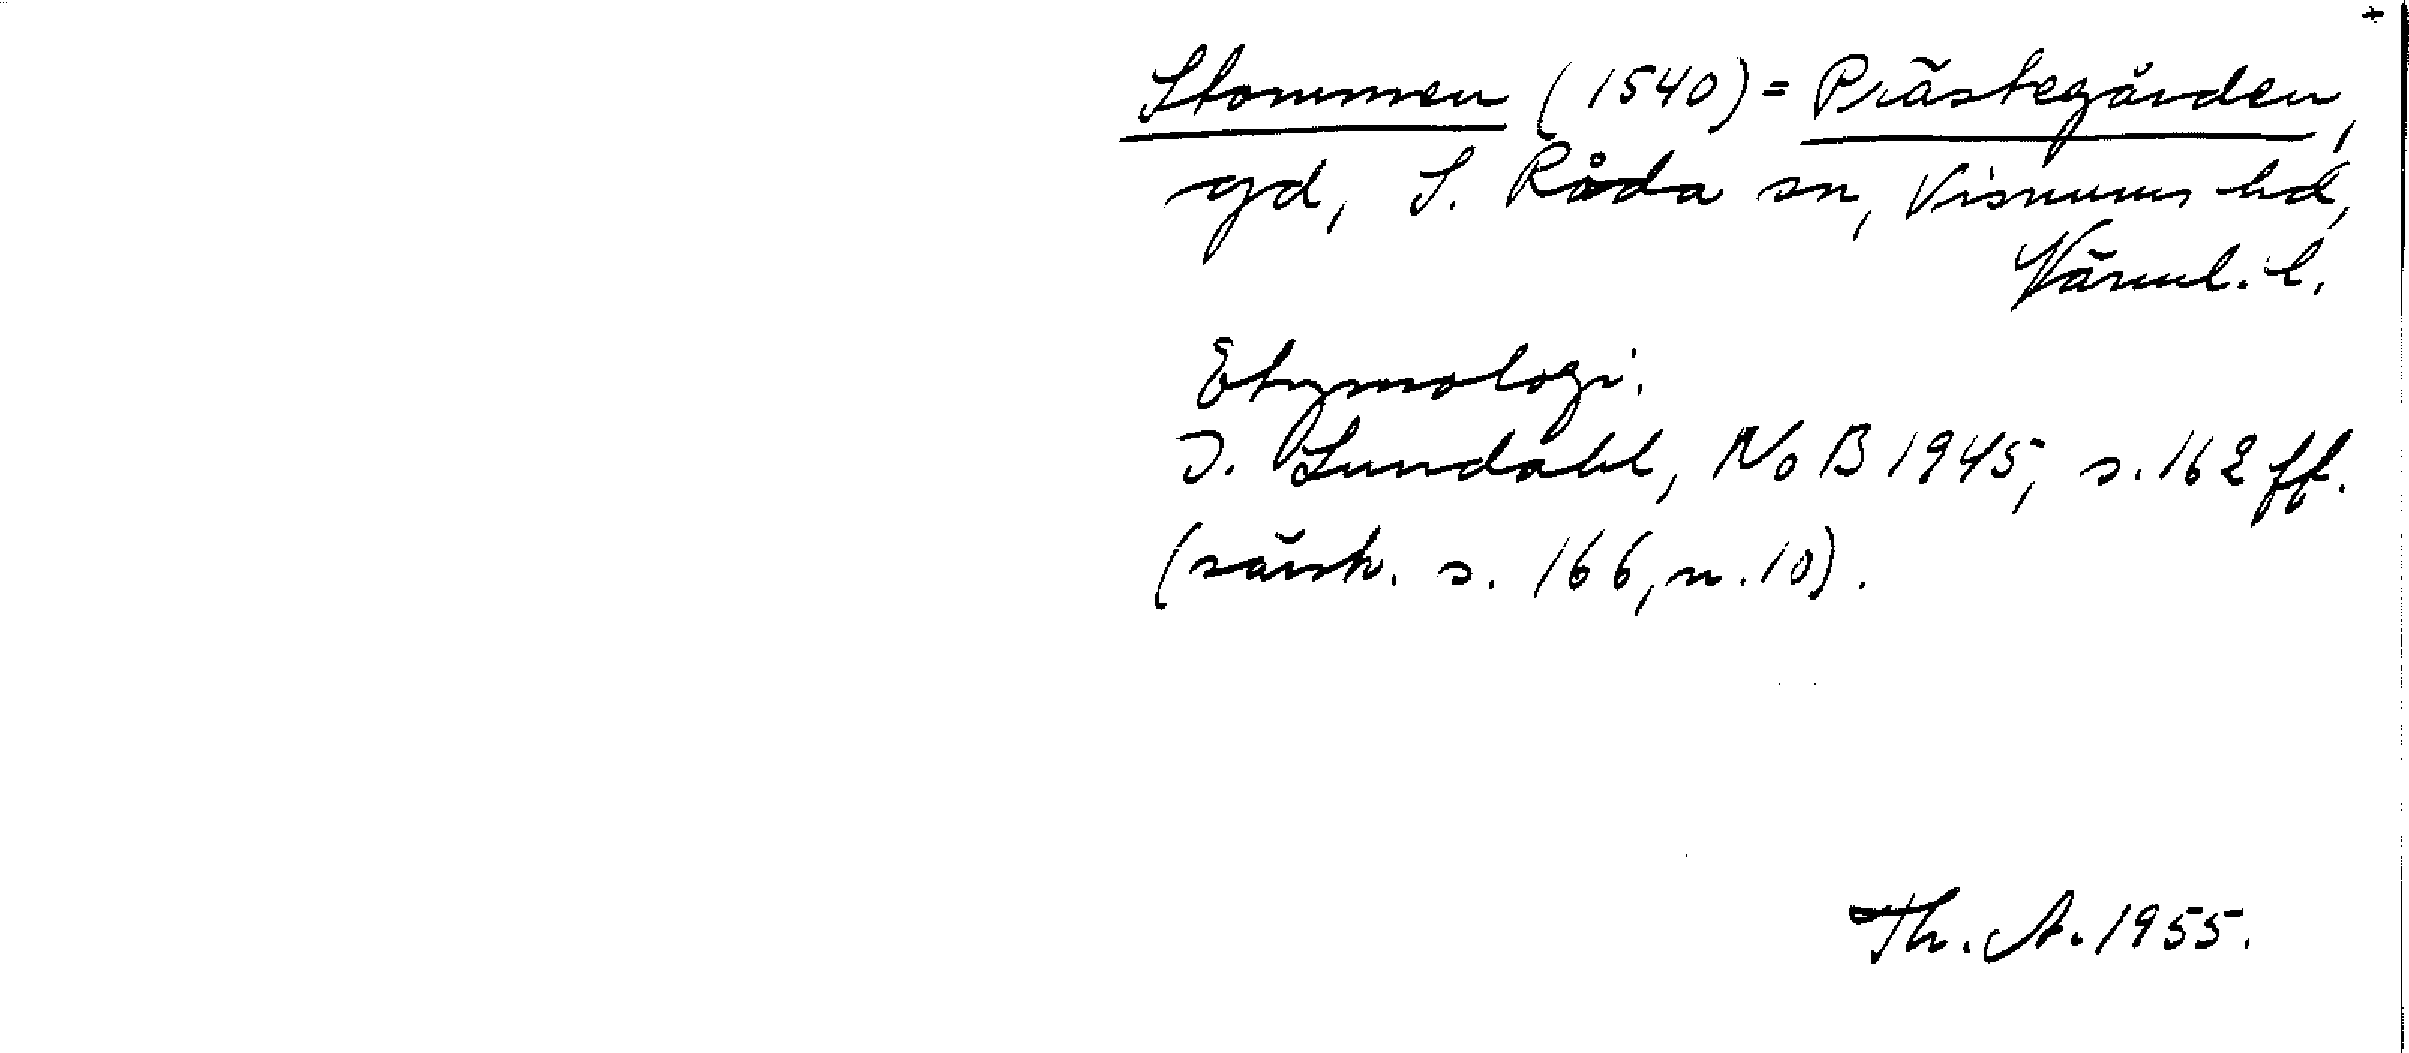 +
Stommen (1540) = Prästegården,
gd, S. Råda sn, Visnums hd,
Värml. l.
Etymologi.
I. Lundahl, NoB 1945, s. 162 ff.
(särsk. s. 166, n. 10).
Th. A. 1955.